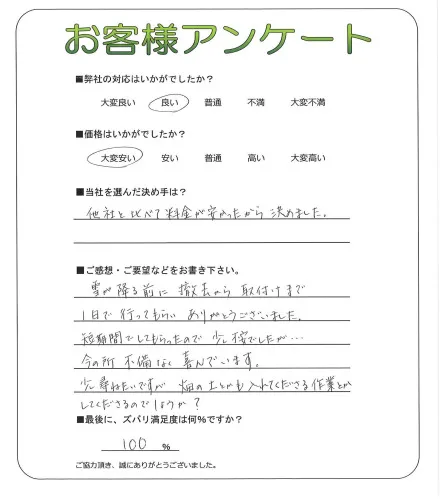 お客様アンケート
■弊社の対応はいかがでしたか?
大変良い 良い 普通 不満 大変不満
■価格はいかがでしたか?
大変安い 安い 普通 高い 大変高い
■当社を選んだ決め手は?
他社と比べて料金が安かったから決めました。
■ご感想・ご要望などをお書き下さい。
雪が降る前に撤去から取付けまで
1日で行ってもらいありがとうございました。
短期間でしてもらったので少し不安でしたが…
今の所不備なく喜んでいます。
少し尋ねたいですが畑の土とかも入れてくださる作業とか
してくださるのでしょうか?
■最後に、ズバリ満足度は何%ですか?
100 %
ご協力頂き、誠にありがとうございました。